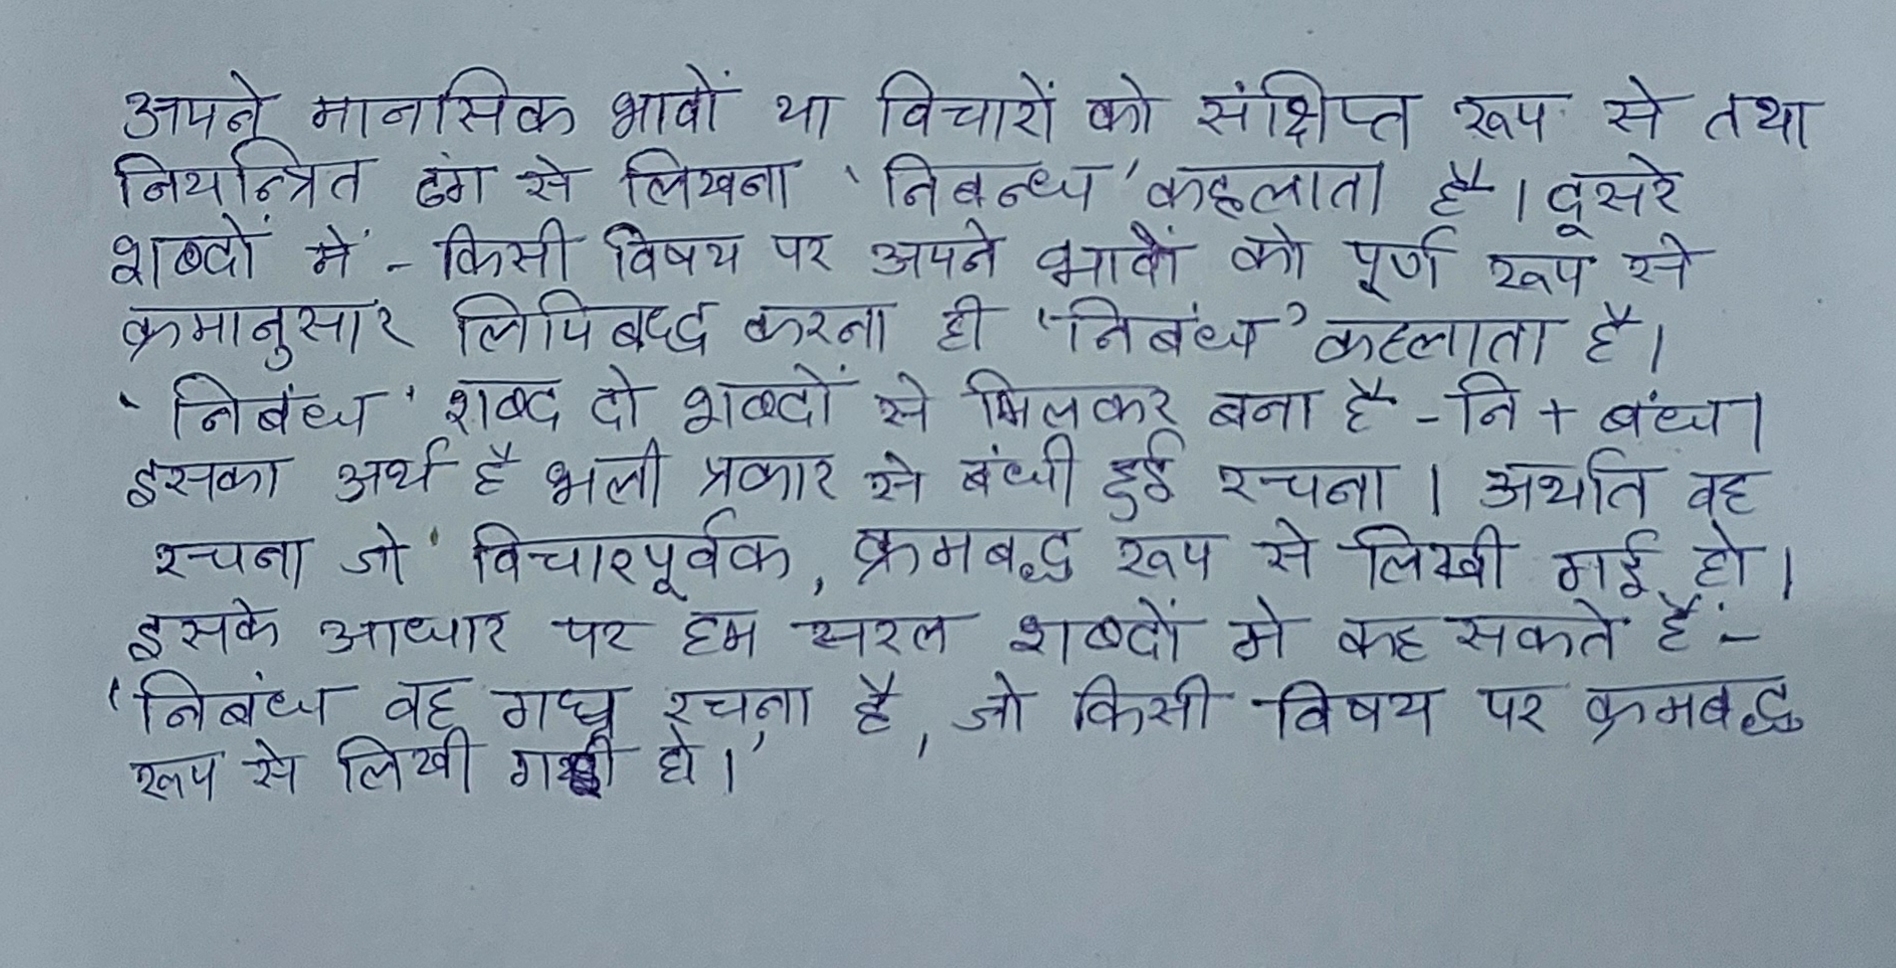 अपने मानसिक भावों या विचारों को संक्षिप्त रूप से तथा
नियन्त्रित ढंग से लिखना 'निबन्ध' कहलाता है। दूसरे
शब्दों में - किसी विषय पर अपने भावों को पूर्ण रूप से
क्रमानुसार लिपिबद्ध करना ही 'निबंध' कहलाता है।
'निबंध' शब्द दो शब्दों से मिलकर बना है - नि + बंध।
इसका अर्थ है भली प्रकार से बंधी हुई रचना। अर्थात वह
रचना जो विचारपूर्वक, क्रमबद्ध रूप से लिखी गई हो।
इसके आधार पर हम सरल शब्दों मे कह सकते हैं:-
'निबंध वह गद्य रचना है, जो किसी विषय पर क्रमबद्ध
रूप से लिखी गई हो।'